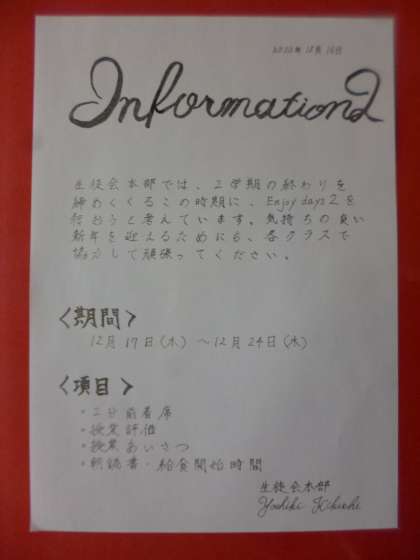 2020年 12月 16日
Information2
生徒会本部では、2学期の終わりを
締めくくるこの時期に、Enjoy days 2を
行おうと考えています。気持ちの良い
新年を迎えるためにも、各クラスで
協力して頑張ってください。
<期間>
12月17日(木)〜12月24日(木)
<項目>
・2分前着席
・授業評価
・授業あいさつ
・朝読書・給食開始時間
生徒会本部
Yoshiki Kikuchi